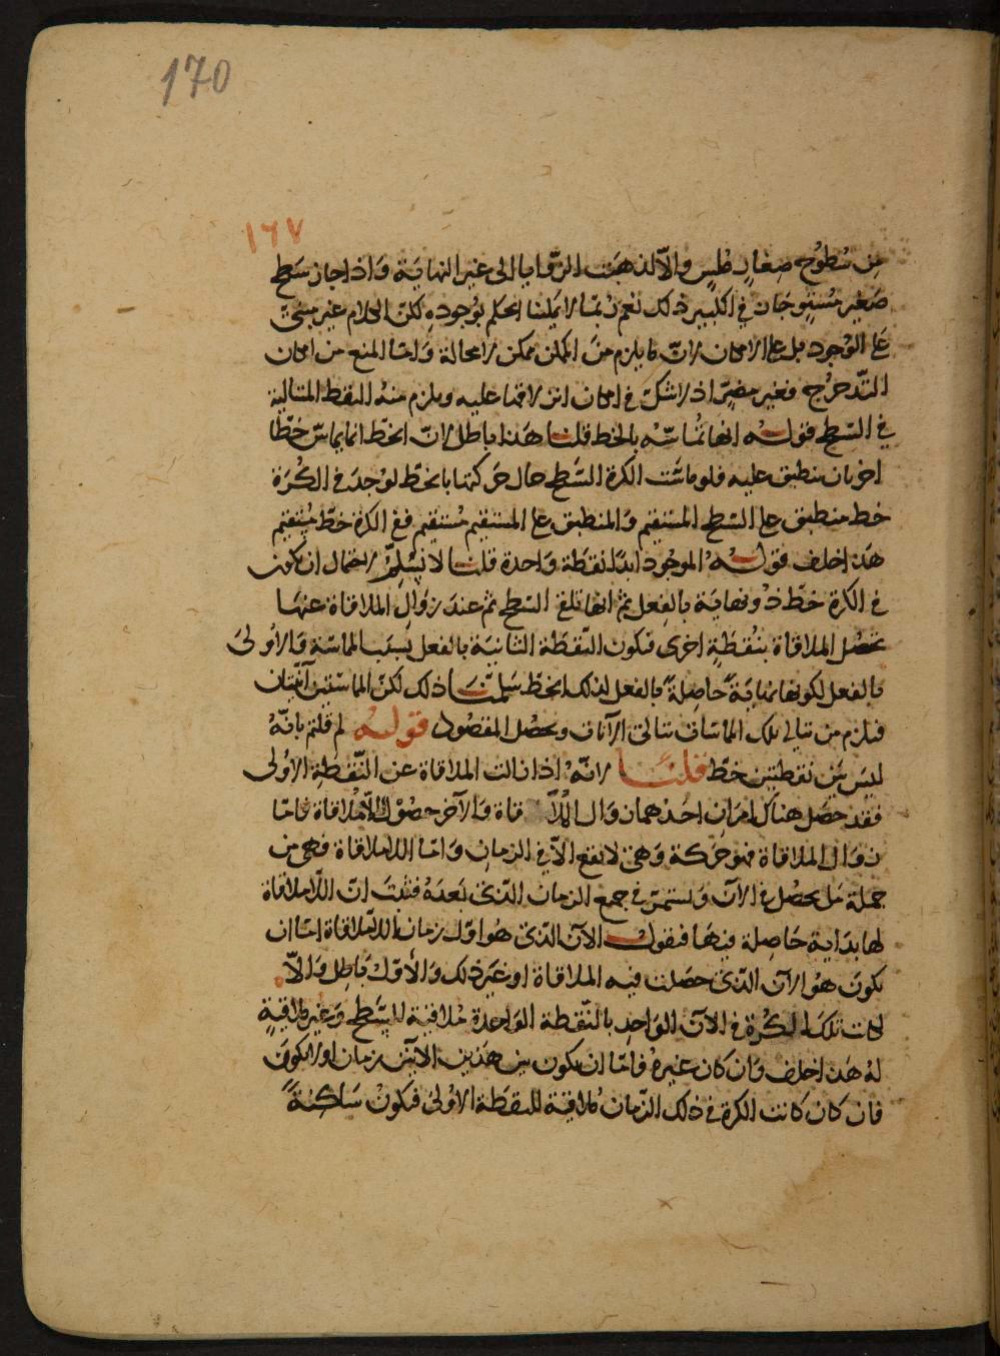 170
١٦٧
من سطوح صغار ملس والا لذهبت الزوايا الى غير النهاية واذا جاز سطح
صغير مستو جاز في الكبير ذلك نعم ربما لا يمكننا الحكم بوجوده لكن الكلام غير مبني
على الوجود بل على الامكان لان ما يلزم من الممكن ممكن لا محالة واما المنع من امكان
التدحرج فغير مضر اذ لا شك في امكان انزلاقها عليه ويلزم منه النقط المتتالية
في السطح قوله انها تماسه بالخط قلنا هذا باطل لان الخط انما يماس خطا
اخر بان ينطبق عليه فلو ماست الكرة السطح حال حركتها بالخط لوجد في الكرة
خط منطبق على السطح المستقيم والمنطبق على المستقيم مستقيم ففي الكرة خط مستقيم
هذا خلف قوله الموجود ابدا نقطة واحدة قلنا لا نسلم لاحتمال ان يكون
في الكرة خط ذو نهاية بالفعل ثم انها تلقى السطح ثم عند زوال الملاقاة عنها
تحصل الملاقاة بنقطة اخرى فتكون النقطة الثانية بالفعل بسبب المماسة والاولى
بالفعل لكونها نهاية حاصلة بالفعل لذلك الخط سلمنا ذلك لكن المماستين آنيتان
فيلزم من تتالي تلك المماسات تتالي الآنات ويحصل المقصود قوله لم قلتم بانه
ليس بين نقطتين خط قلنا لانه اذا زالت الملاقاة عن النقطة الاولى
فقد حصل هناك امران احدهما زوال الملاقاة والآخر حصول اللاملاقاة فاما
زوال الملاقاة فهو حركة وهي لا تقع الا في الزمان واما اللاملاقاة فهي من
جملة ما يحصل في الآن ويستمر في جميع الزمان الذي بعده فثبت ان اللاملاقاة
لها بداية حاصلة فيها فنقول الآن الذي هو اول زمان اللاملاقاة اما ان
يكون هو الآن الذي حصلت فيه الملاقاة او غير ذلك والاول باطل والا
لكانت تلك الكرة في الآن الواحد بالنقطة الواحدة ملاقية للسطح وغير ملاقية
له هذا خلف وان كان غيره فاما ان يكون بين هذين الآنين زمان او لا يكون
فان كان كانت الكرة في ذلك الزمان ملاقية للنقطة الاولى فتكون ساكنة